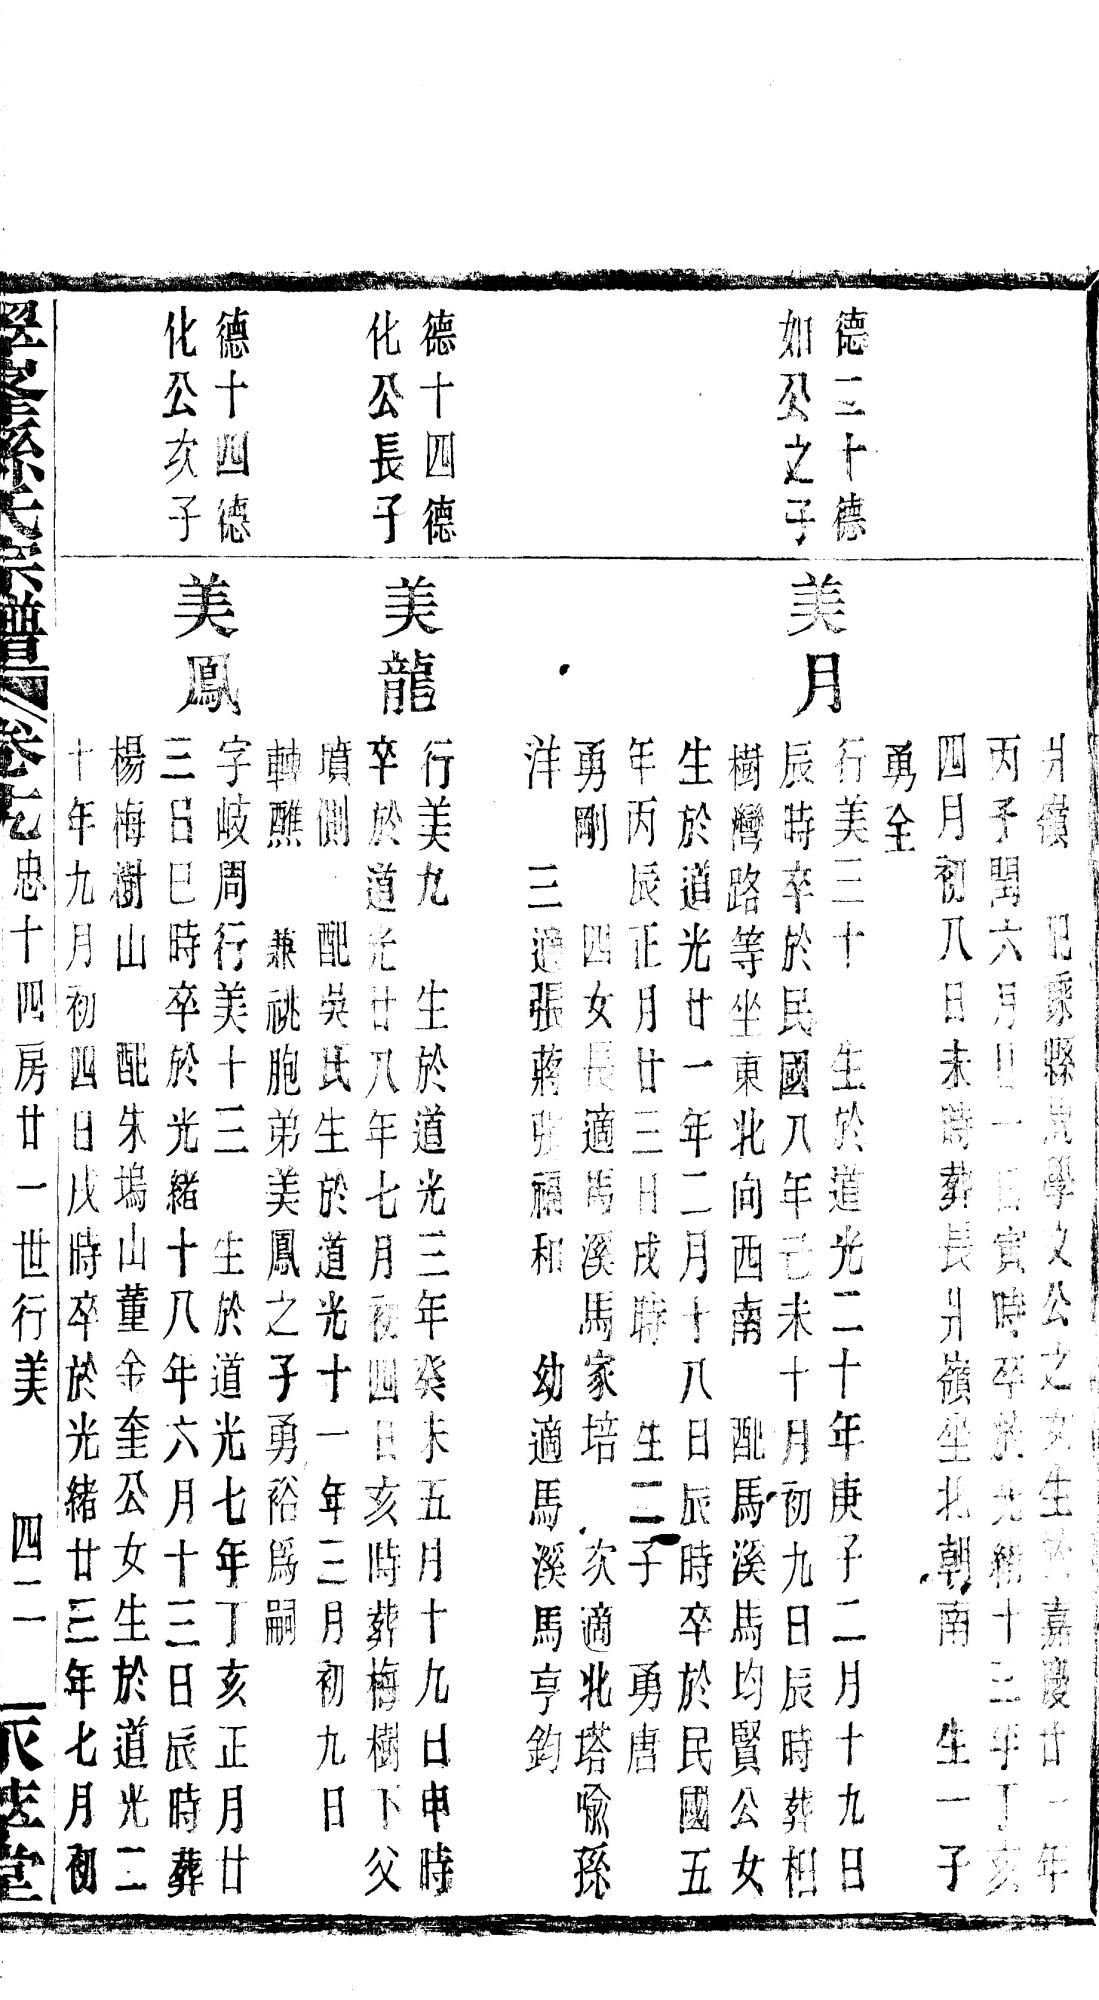 廾嶺　配縣學文公之女生於嘉慶廿一年
丙子閏六月廿一日寅時卒於光緒十三年丁亥
四月初八日未時葬長廾嶺坐北朝南　生一子
勇全
德二十德
如公之子
美月
行美三十　生於道光二十年庚子二月十九日
辰時卒於民國八年己未十月初九日辰時葬相
樹灣路等坐東北向西南　配馬溪馬均賢公女
生於道光廿一年二月十八日辰時卒於民國五
年丙辰正月廿三日戌時　生二子　勇唐
勇剛　四女長適馬溪馬家培　次適北塔喩孫
洋　三適張蔣張福和　幼適馬溪馬亨鈞
德十四德
化公長子
美龍
行美九　生於道光三年癸未五月十九日申時
卒於道光廿八年七月初四日亥時葬梅樹下父
墳側　配吳氏生於道光十一年三月初九日
轉醮　兼祧胞弟美鳳之子勇裕爲嗣
德十四德
化公次子
美鳳
字岐周行美十三　生於道光七年丁亥正月廿
三日巳時卒於光緒十八年六月十三日辰時葬
楊梅樹山　配朱塢山董金奎公女生於道光二
十年九月初四日戌時卒於光緒廿三年七月初
孫氏宗譜　卷　忠十四房廿一世行美　四二　堂